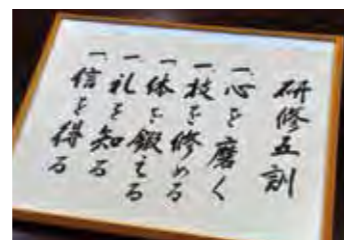 研修五訓
一心を磨く
一技を修める
一体を鍛える
一礼を知る
一信を得る